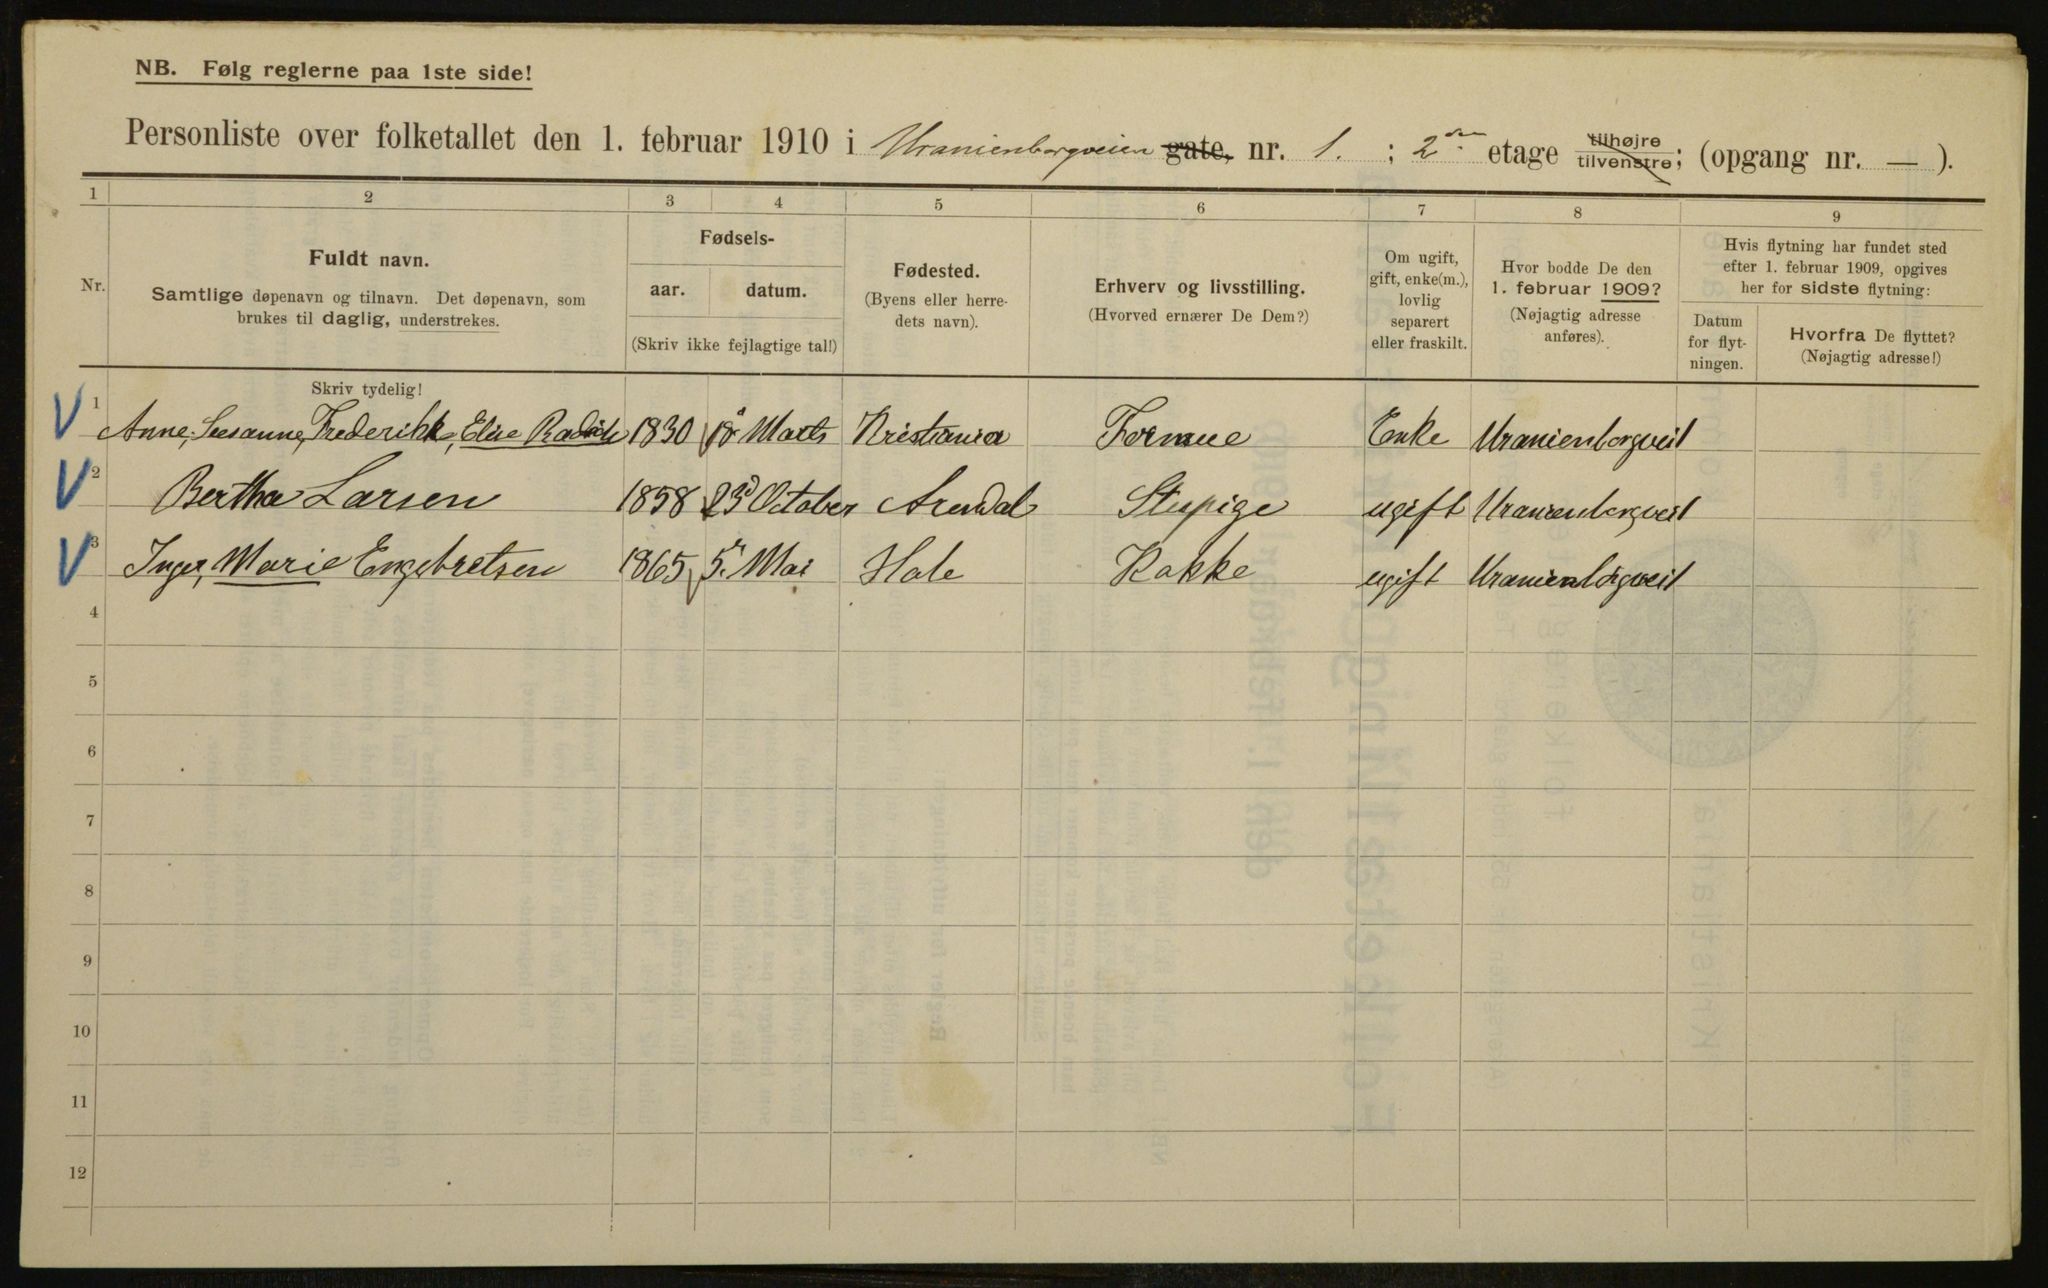 NB. Følg reglerne paa 1ste side!
Personliste over folketallet den 1. februar 1910 i Uranienborgveien gate, nr. 1. ; 2den etage tilhøjre tilvenstre; (opgang nr. — ).
1 2 3 4 5 6 7 8 9
Nr.
Fuldt navn.
Samtlige døpenavn og tilnavn. Det døpenavn, som
brukes til daglig, understrekes.
Skriv tydelig!
Fødsels-
aar. datum.
(Skriv ikke fejlagtige tal!)
Fødested.
(Byens eller herre-
dets navn).
Erhverv og livsstilling.
(Hvorved ernærer De Dem?)
Om ugift,
gift, enke(m.),
lovlig
separert
eller fraskilt.
Hvor bodde De den
1. februar 1909?
(Nøjagtig adresse
anføres).
Hvis flytning har fundet sted
efter 1. februar 1909, opgives
her for sidste flytning:
Datum
for flyt-
ningen.
Hvorfra De flyttet?
(Nøjagtig adresse!)
1 Anne, Susanne, Frederikke, Elise 1830 Marts Kristiania Formue Enke Uranienborgvei 1
2 Bertha Larsen 1858 23d October Arendal Stuepige ugift Uranienborgvei 1
3 Inger, Marie Engebretsen 1865 5. Mai Hole Kokke ugift Uranienborgvei 1
4
5
6
7
8
9
10
11
12